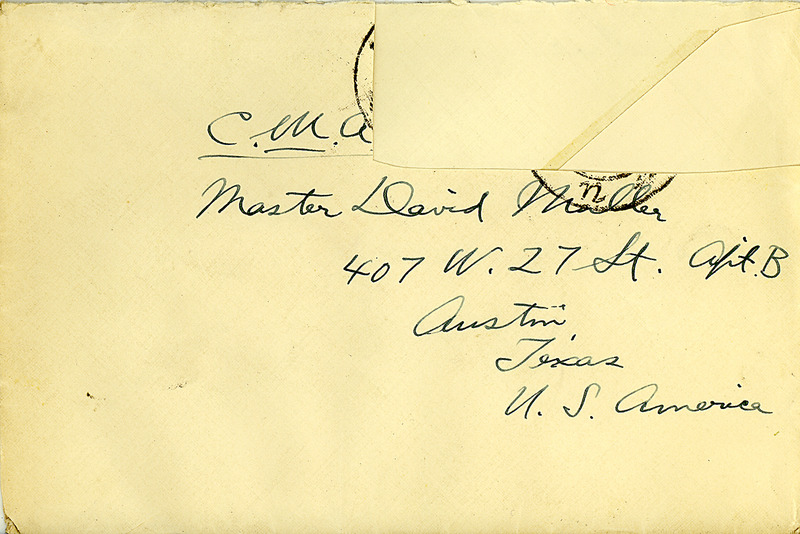 C. M. A
Master David Moller
407 W. 27 St. Apt. B
Austin,
Texas
U. S. America
n